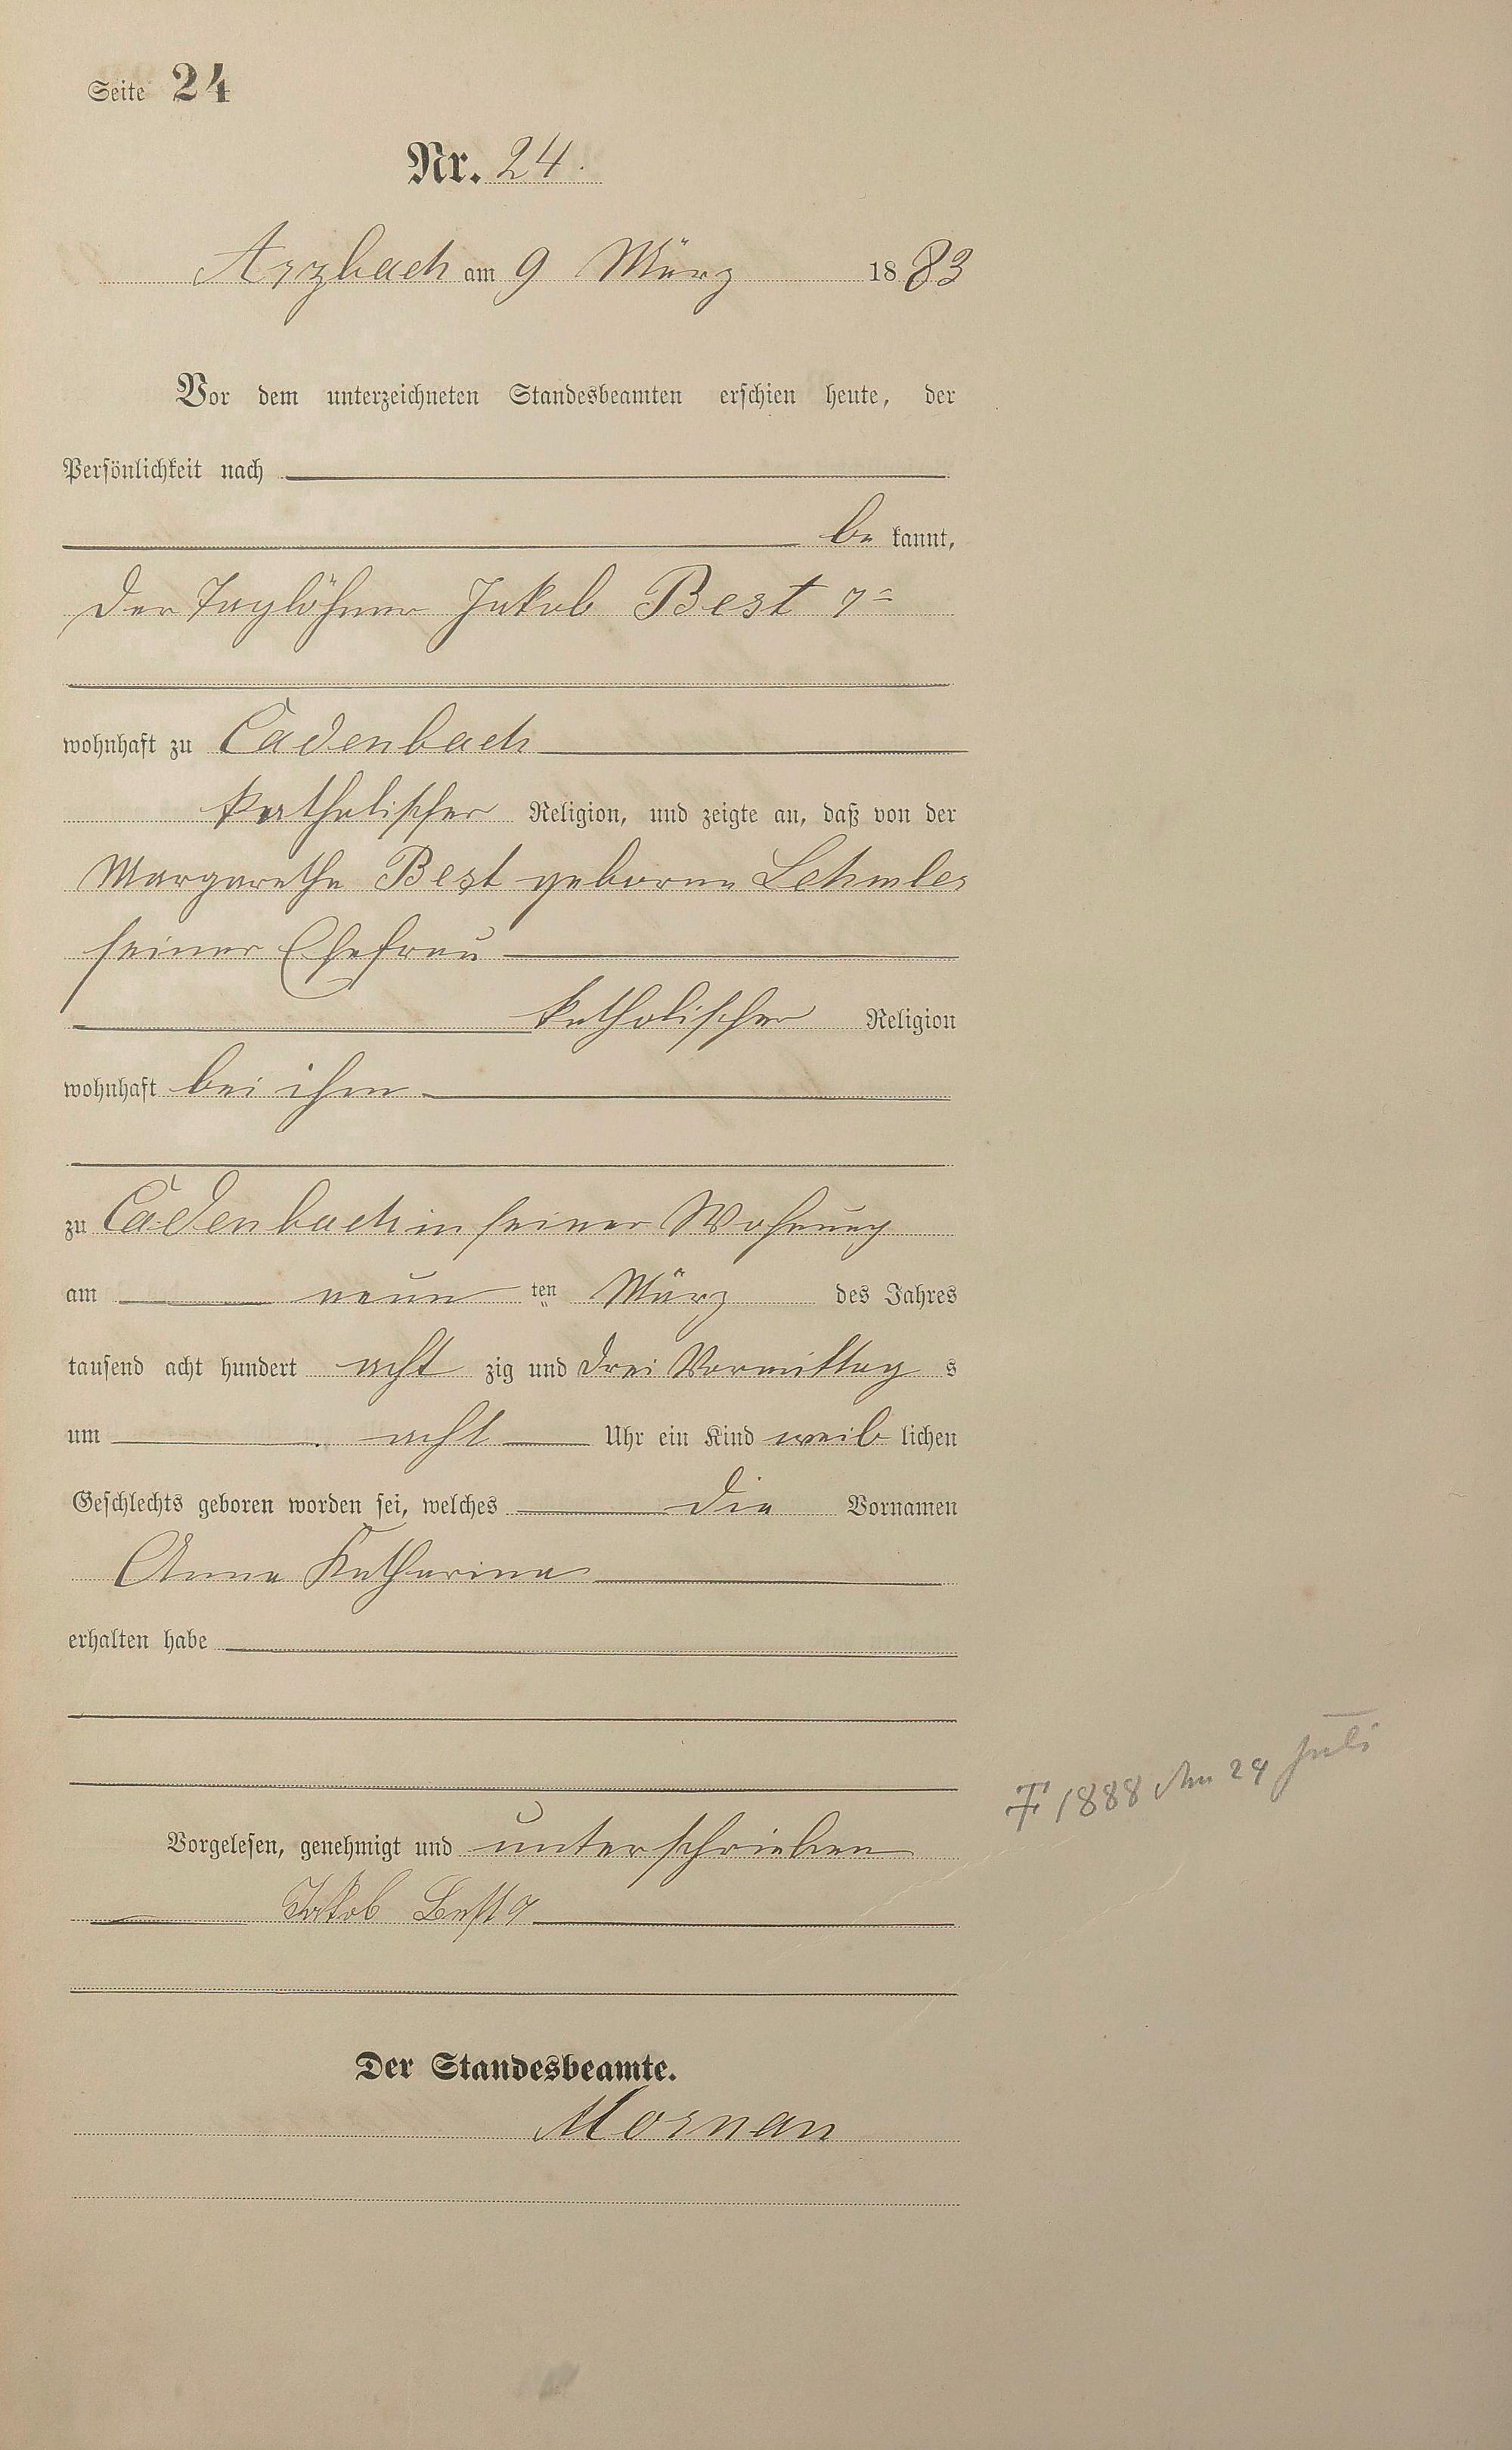 Seite 24
Nr. 24.
Arzbach am 9 März 1883
Vor dem unterzeichneten Standesbeamten erschien heute, der
Persönlichkeit nach
be kannt,
der Taglöhner Jakob Best 7=
wohnhaft zu Cadenbach
katholischer Religion, und zeigte an, daß von der
Margarethe Best geborne Lehmler
seiner Ehefrau
katholischer Religion
wohnhaft bei ihm
zu Cadenbach in seiner Wohnung
am neun ten März des Jahres
tausend acht hundert acht zig und drei Vormittag s
um acht Uhr ein Kind weib lichen
Geschlechts geboren worden sei, welches die Vornamen
Anna Katharina
erhalten habe
Vorgelesen, genehmigt und unterschrieben
Jakob Best 7
Der Standesbeamte.
† 1888 den 24 Juli